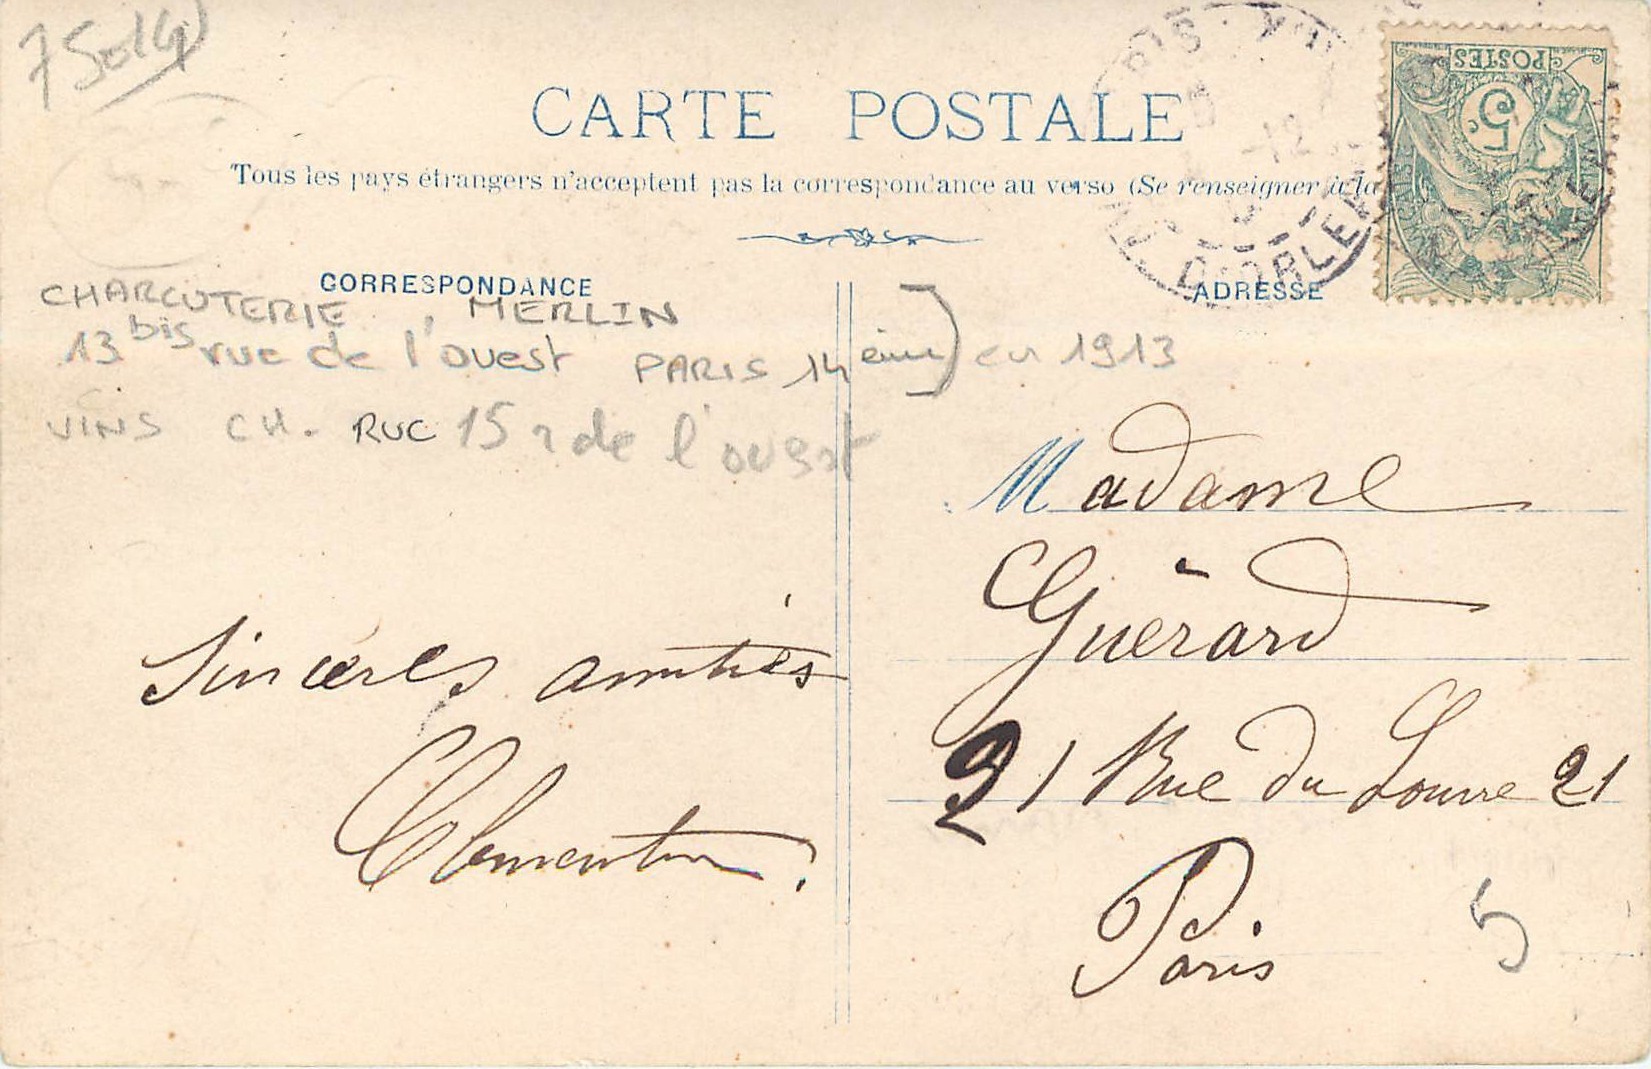 75014
CARTE POSTALE
Tous les pays étrangers n'acceptent pas la correspondance au verso (Se renseigner à la
POSTES
5c
D'ORLEA
CORRESPONDANCE
ADRESSE
CHARCUTERIE MERLIN
13 bis rue de l'ouest PARIS 14 ème) en 1913
VINS CH. RUC 15 r de l'ouest
Madame
Guérard
21 Rue du Louvre 21
Paris
Sincères amitiés
5